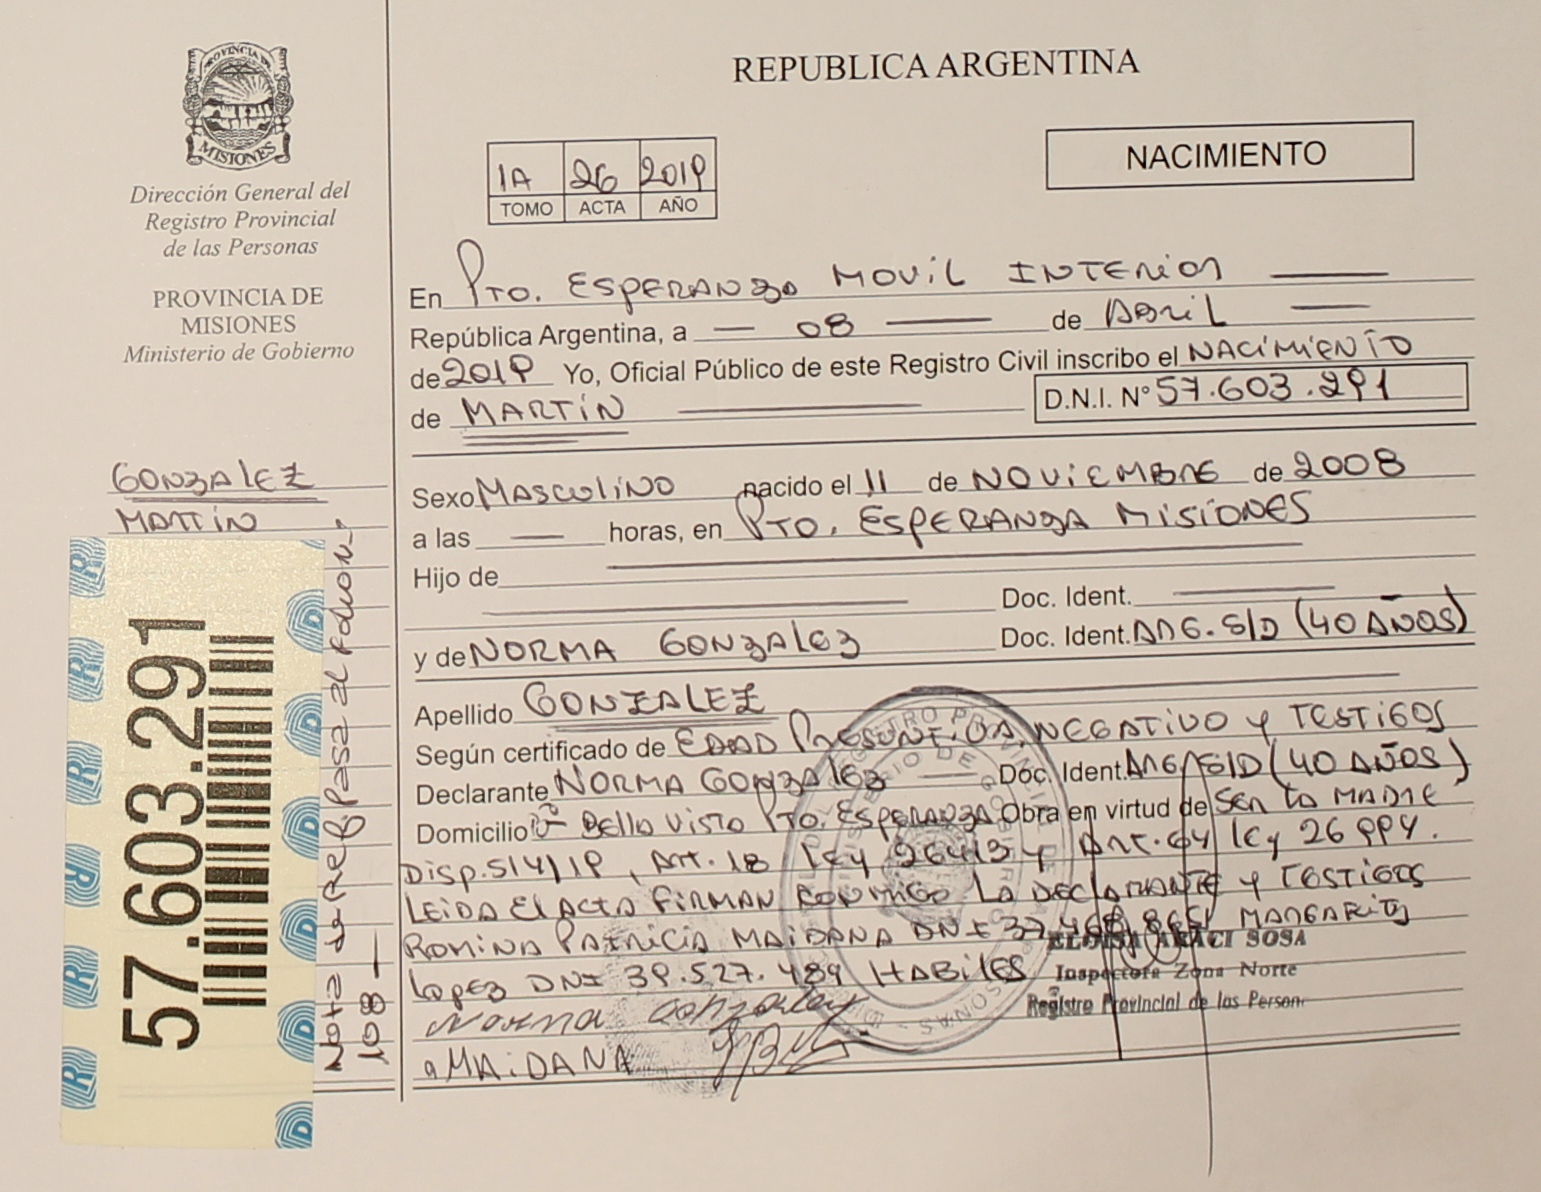 PROVINCIA DE
MISIONES
Dirección General del
Registro Provincial
de las Personas
PROVINCIA DE
MISIONES
Ministerio de Gobierno
REPUBLICA ARGENTINA
NACIMIENTO
1A 26 2019
TOMO ACTA AÑO
En Pto. Esperanza Movil Interior
República Argentina, a — 08 — de Abril —
de 2019 Yo, Oficial Público de este Registro Civil inscribo el Nacimiento
de Martín D.N.I. Nº 57.603.291
Gonzalez
Martin
Sexo Masculino nacido el 11 de Noviembre de 2008
a las — horas, en Pto. Esperanza Misiones
Hijo de
Doc. Ident.
y de Norma Gonzalez Doc. Ident. Arg. S/D (40 años)
Apellido Gonzalez
Según certificado de Edad Presunt.iva, Negativo y Testigos
Declarante Norma Gonzalez — Doc. Ident. Arg S/D (40 años)
Domicilio Bella Vista Pto. Esperanza Obra en virtud de ser la madre
Disp. 514/19, Art. 18 ley 26413 y Art. 64 ley 26994.
Leida el acta firman conmigo la declarante y testigos
Romina Patricia Maidana DNI Margarita
Lopez DNI 39.527.489 Habiles
Norma Gonzalez
a Maidana
ELOISA ARACI SOSA
Inspectora Zona Norte
Registro Provincial de las Person
57.603.291
Nota de Ref. Pasa al Folio Nº
108 —